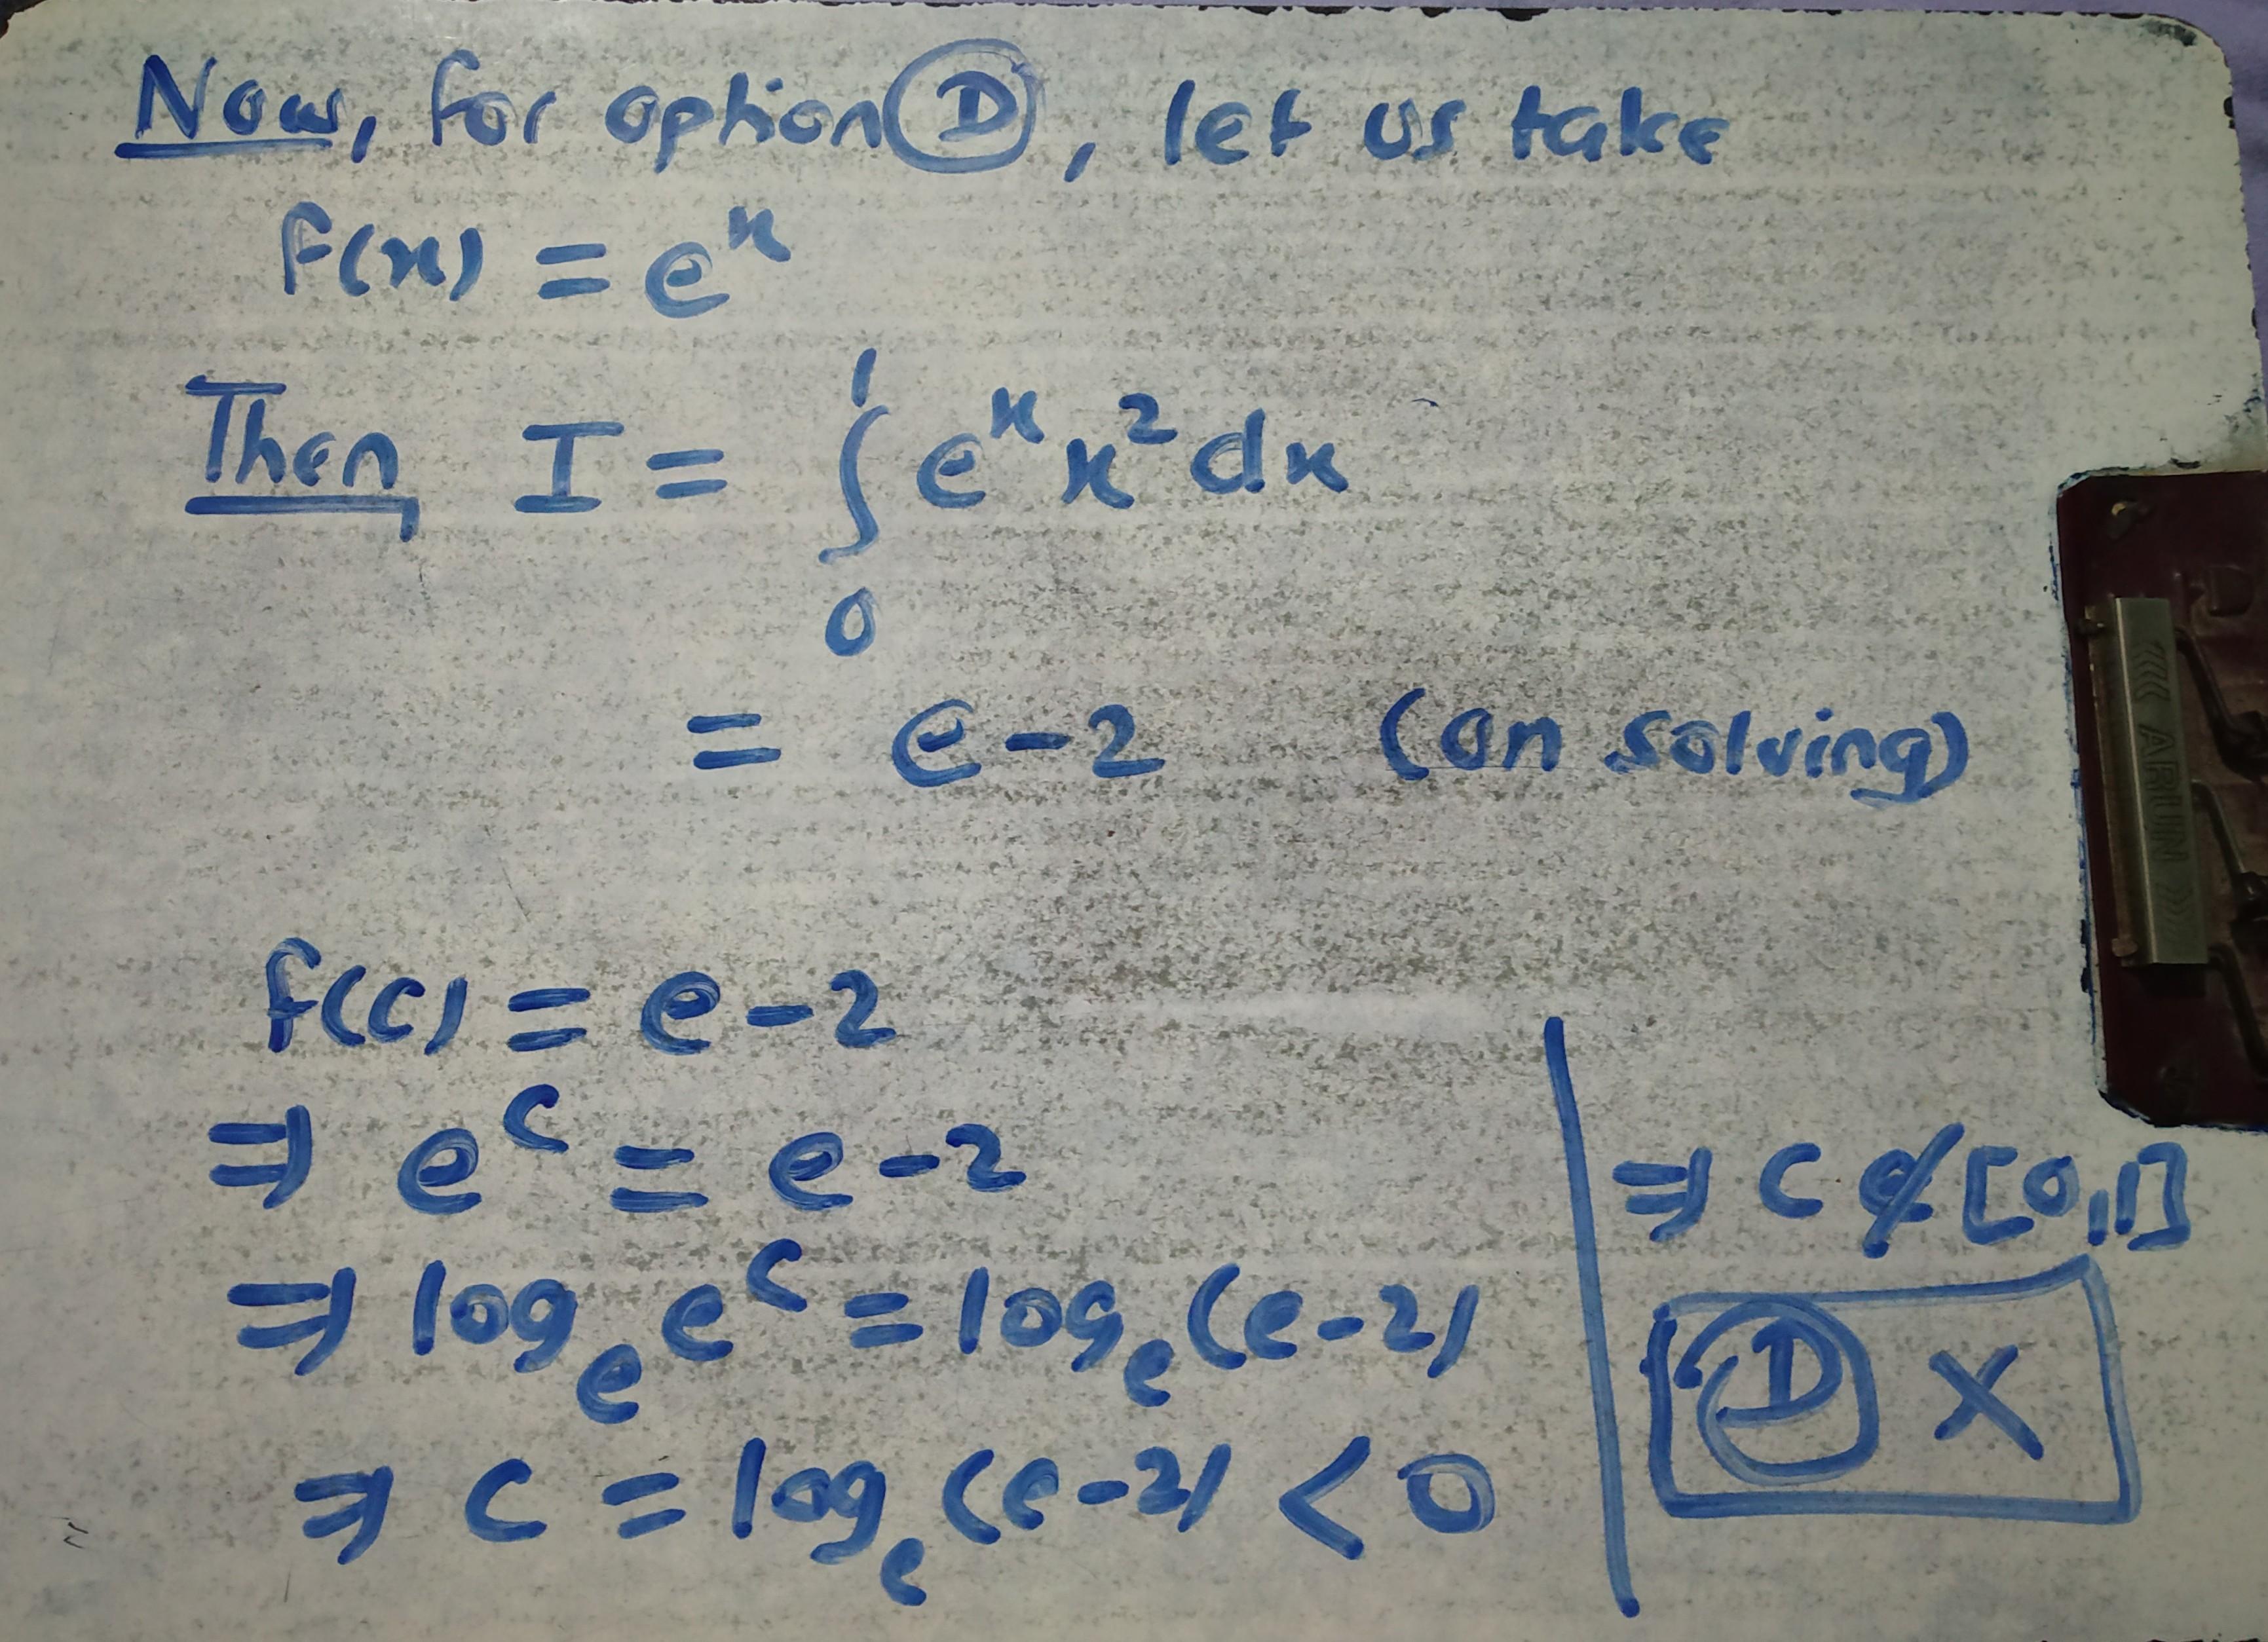 Now, for option Ⓓ, let us take
f(x) = eˣ
Then, I = ∫₀¹ eˣ x² dx
= e-2 (on solving)
f(c) = e-2
⇒ eᶜ = e-2
⇒ logₑ eᶜ = logₑ (e-2)
⇒ c = logₑ (e-2) < 0
⇒ c ∉ [0,1]
Ⓓ ×
ARUN